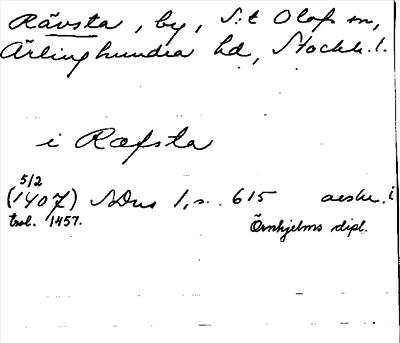 Rävsta, by, S:t Olofs sn,
Ärlinghundra hd, Stockh. l.
i Ræfsta
5/2
(1407) SDns 1, s. 615 avskr. i
trol. 1457. Örnhjelms dipl.